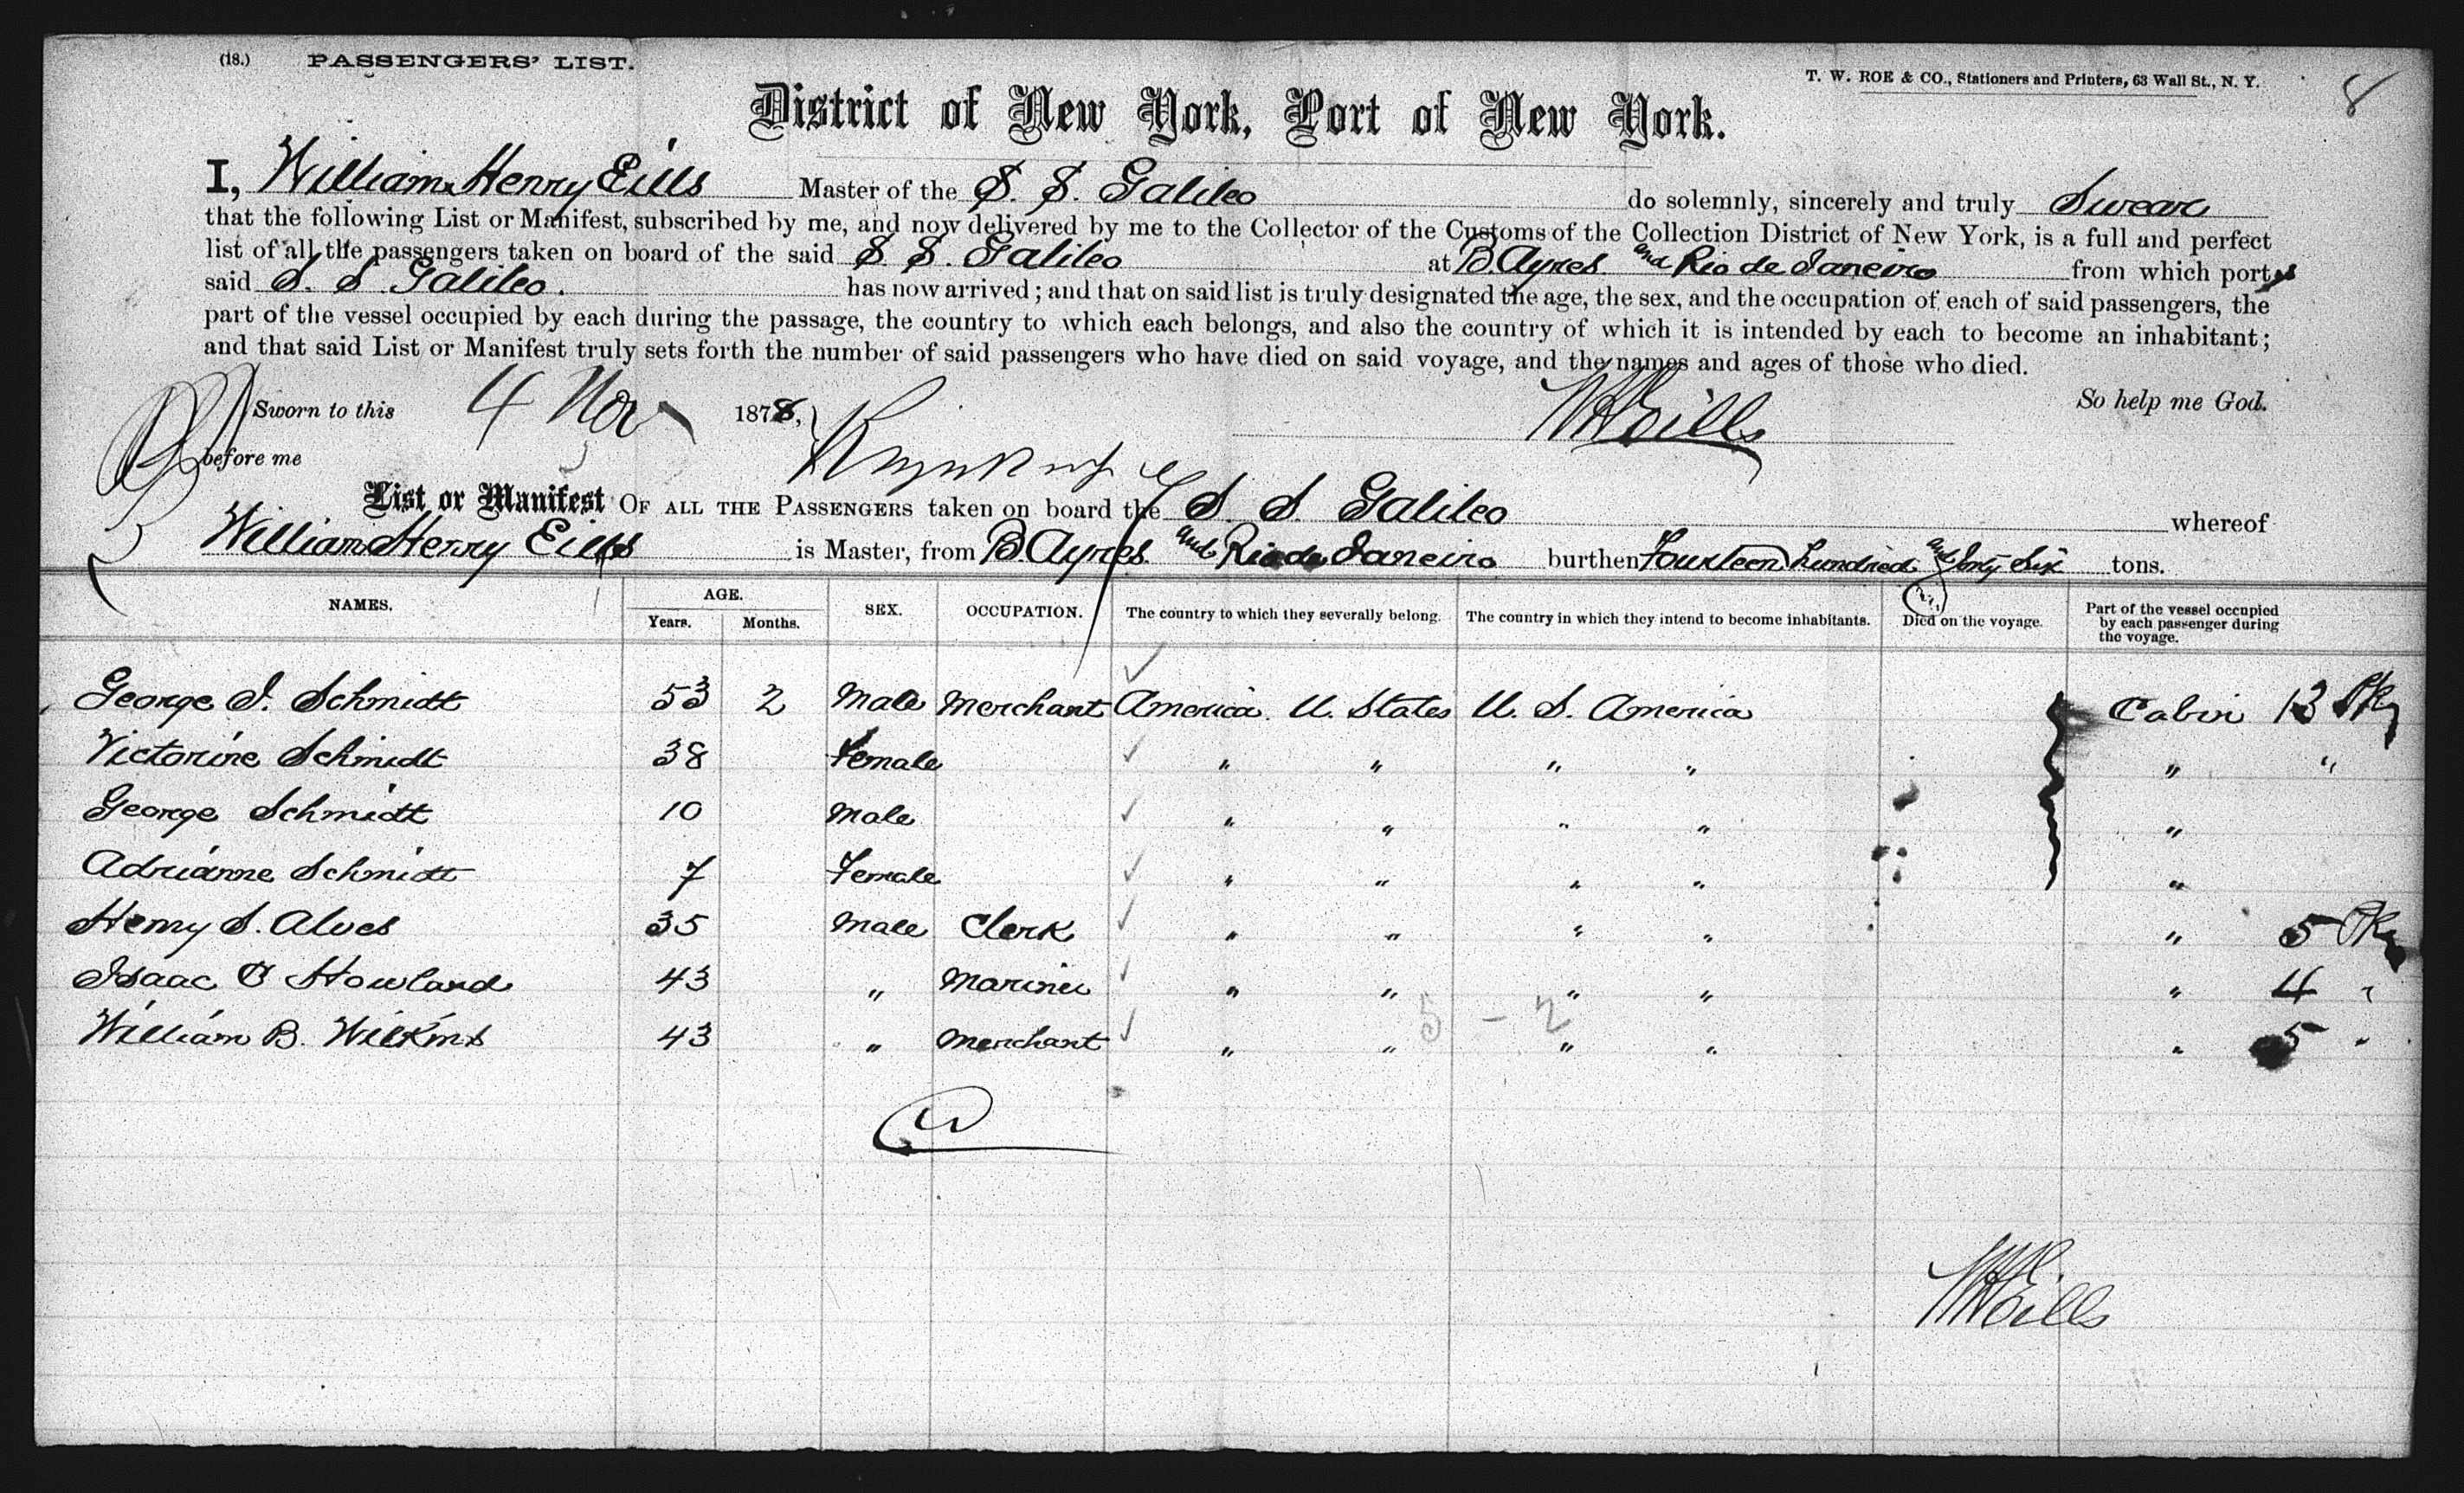 (18.) PASSENGERS' LIST.
T. W. ROE & CO., Stationers and Printers, 63 Wall St., N. Y.
8
District of New York, Port of New York.
I, William Henry Eills Master of the S. S. Galileo do solemnly, sincerely and truly Swear
that the following List or Manifest, subscribed by me, and now delivered by me to the Collector of the Customs of the Collection District of New York, is a full and perfect
list of all the passengers taken on board of the said S. S. Galileo at B. Ayres and Rio de Janeiro from which ports
said S. S Galileo. has now arrived; and that on said list is truly designated the age, the sex, and the occupation of each of said passengers, the
part of the vessel occupied by each during the passage, the country to which each belongs, and also the country of which it is intended by each to become an inhabitant;
and that said List or Manifest truly sets forth the number of said passengers who have died on said voyage, and the names and ages of those who died.
Sworn to this 4 Nov 1878, W H Eills So help me God.
before me
List or Manifest OF ALL THE PASSENGERS taken on board the S. S. Galileo whereof
William Henry Eills is Master, from B. Ayres. and Rio de Janeiro burthen Fourteen hundred and forty Six tons.
NAMES. AGE. Years. Months. SEX. OCCUPATION. The country to which they severally belong. The country in which they intend to become inhabitants. Died on the voyage. Part of the vessel occupied by each passenger during the voyage.
George I. Schmidt 53 2 Male Merchant America. U. States U. S. America Cabin 13 Pkg
Victorine Schmidt 38 Female " " " " " "
George Schmidt 10 Male " " " " "
Adrianne Schmidt 7 Female " " " " "
Henry S. Alves 35 Male Clerk " " " " " 5 Pkg
Isaac C Howland 43 " Mariner " " " " " 4 "
William B. Wilkins 43 " Merchant " " " " " 5 "
5 - 2
W H Eills